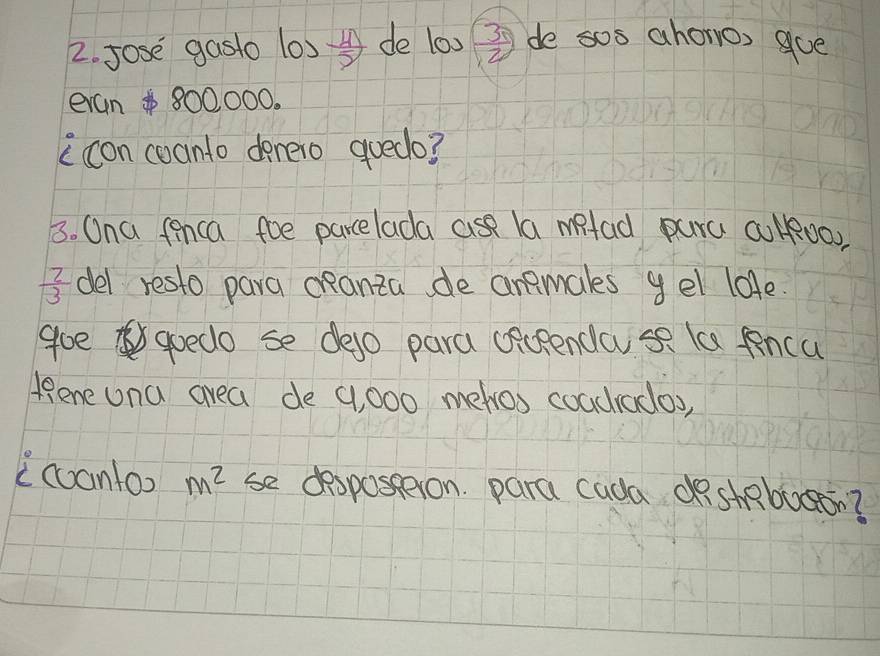 2. José gasto los 4/5 de los 3/2 de sus ahorros que
eran $ 800,000.
¿con cuanto dinero quedo?
3. Una finca fue parcelada asi la mitad para cultivos,
2/3 del resto para crianza de animales y el lote.
que quedo se dejo para vivienda si la finca
tiene una area de 9,000 metros cuadrados,
¿cuantos m² se disposieron. para cada distribucion?